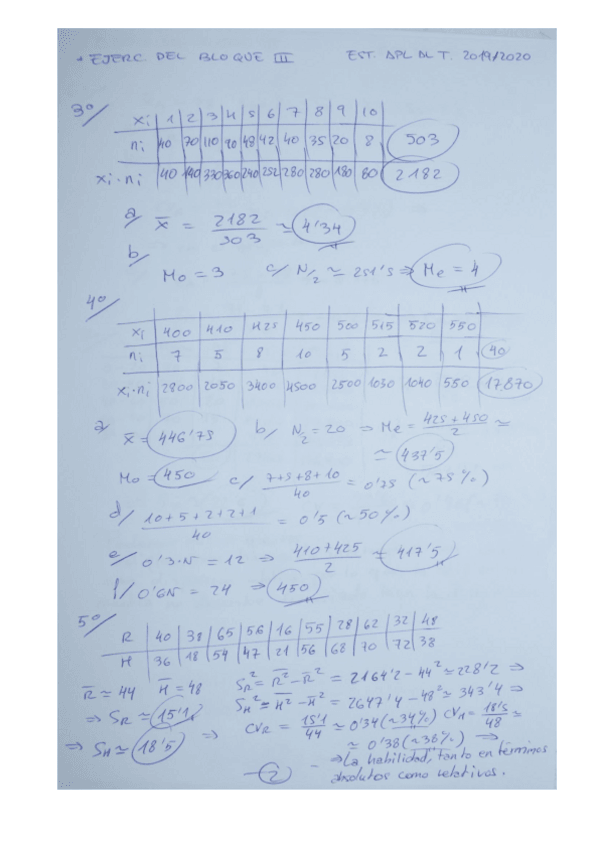 * EJERC. DEL BLOQUE III EST. APL AL T. 2019/2020
3º/
xi 1 2 3 4 5 6 7 8 9 10
ni 40 70 110 90 48 42 40 35 20 8 503
xi·ni 40 140 330 360 240 252 280 280 180 80 2182
a/ x̄ = 2182/503 ≃ 4'34
b/ Mo = 3 c/ N/2 ≃ 251'5 ⇒ Me = 4
4º/
xi 400 410 425 450 500 515 520 550
ni 7 5 8 10 5 2 2 1 40
xi·ni 2800 2050 3400 4500 2500 1030 1040 550 17870
a/ x̄ = 446'75 b/ N/2 = 20 ⇒ Me = (425+450)/2 ≃
≃ 437'5
Mo = 450 c/ (7+5+8+10)/40 = 0'75 (~75%)
d/ (10+5+2+2+1)/40 = 0'5 (~50%)
e/ 0'3·N = 12 ⇒ (410+425)/2 ≃ 417'5
f/ 0'6N = 24 ⇒ 450
5º/
R 40 38 65 56 16 55 28 62 32 48
H 36 18 54 47 21 56 68 70 72 38
R̄ ≃ 44 H̄ = 48 SR² = R̄² - R̄² = 2164'2 - 44² ≃ 228'2 ⇒
⇒ SR ≃ 15'1 SH² = H̄² - H̄² = 2647'4 - 48² ≃ 343'4 ⇒
⇒ SH ≃ 18'5 ⇒ CVR = 15'1/44 ≃ 0'34 (~34%) CVH = 18'5/48 ≃
≃ 0'38 (~38%) ⇒
⇒ La habilidad, tanto en términos
absolutos como relativos.
-2-